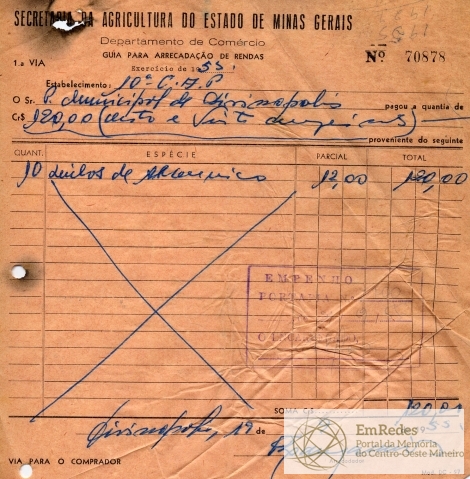 SECRETARIA DA AGRICULTURA DO ESTADO DE MINAS GERAIS
Departamento de Comércio
GUIA PARA ARRECADAÇÃO DE RENDAS
1.a VIA
Nº 70878
Exercício de 1955
Estabelecimento: 10ª C.A.P
O Sr. P. Municipal de Divinopolis pagou a quantia de
Cr$ 120,00 (cento e vinte cruzeiros)
proveniente do seguinte
QUANT. ESPÉCIE PARCIAL TOTAL
10 quilos de 12,00 120,00
EMPENHO
PORTARIA
SOMA Cr$ 120,00
Divinopolis, 19 de
VIA PARA O COMPRADOR
EmRedes
Portal da Memória
do Centro-Oeste Mineiro